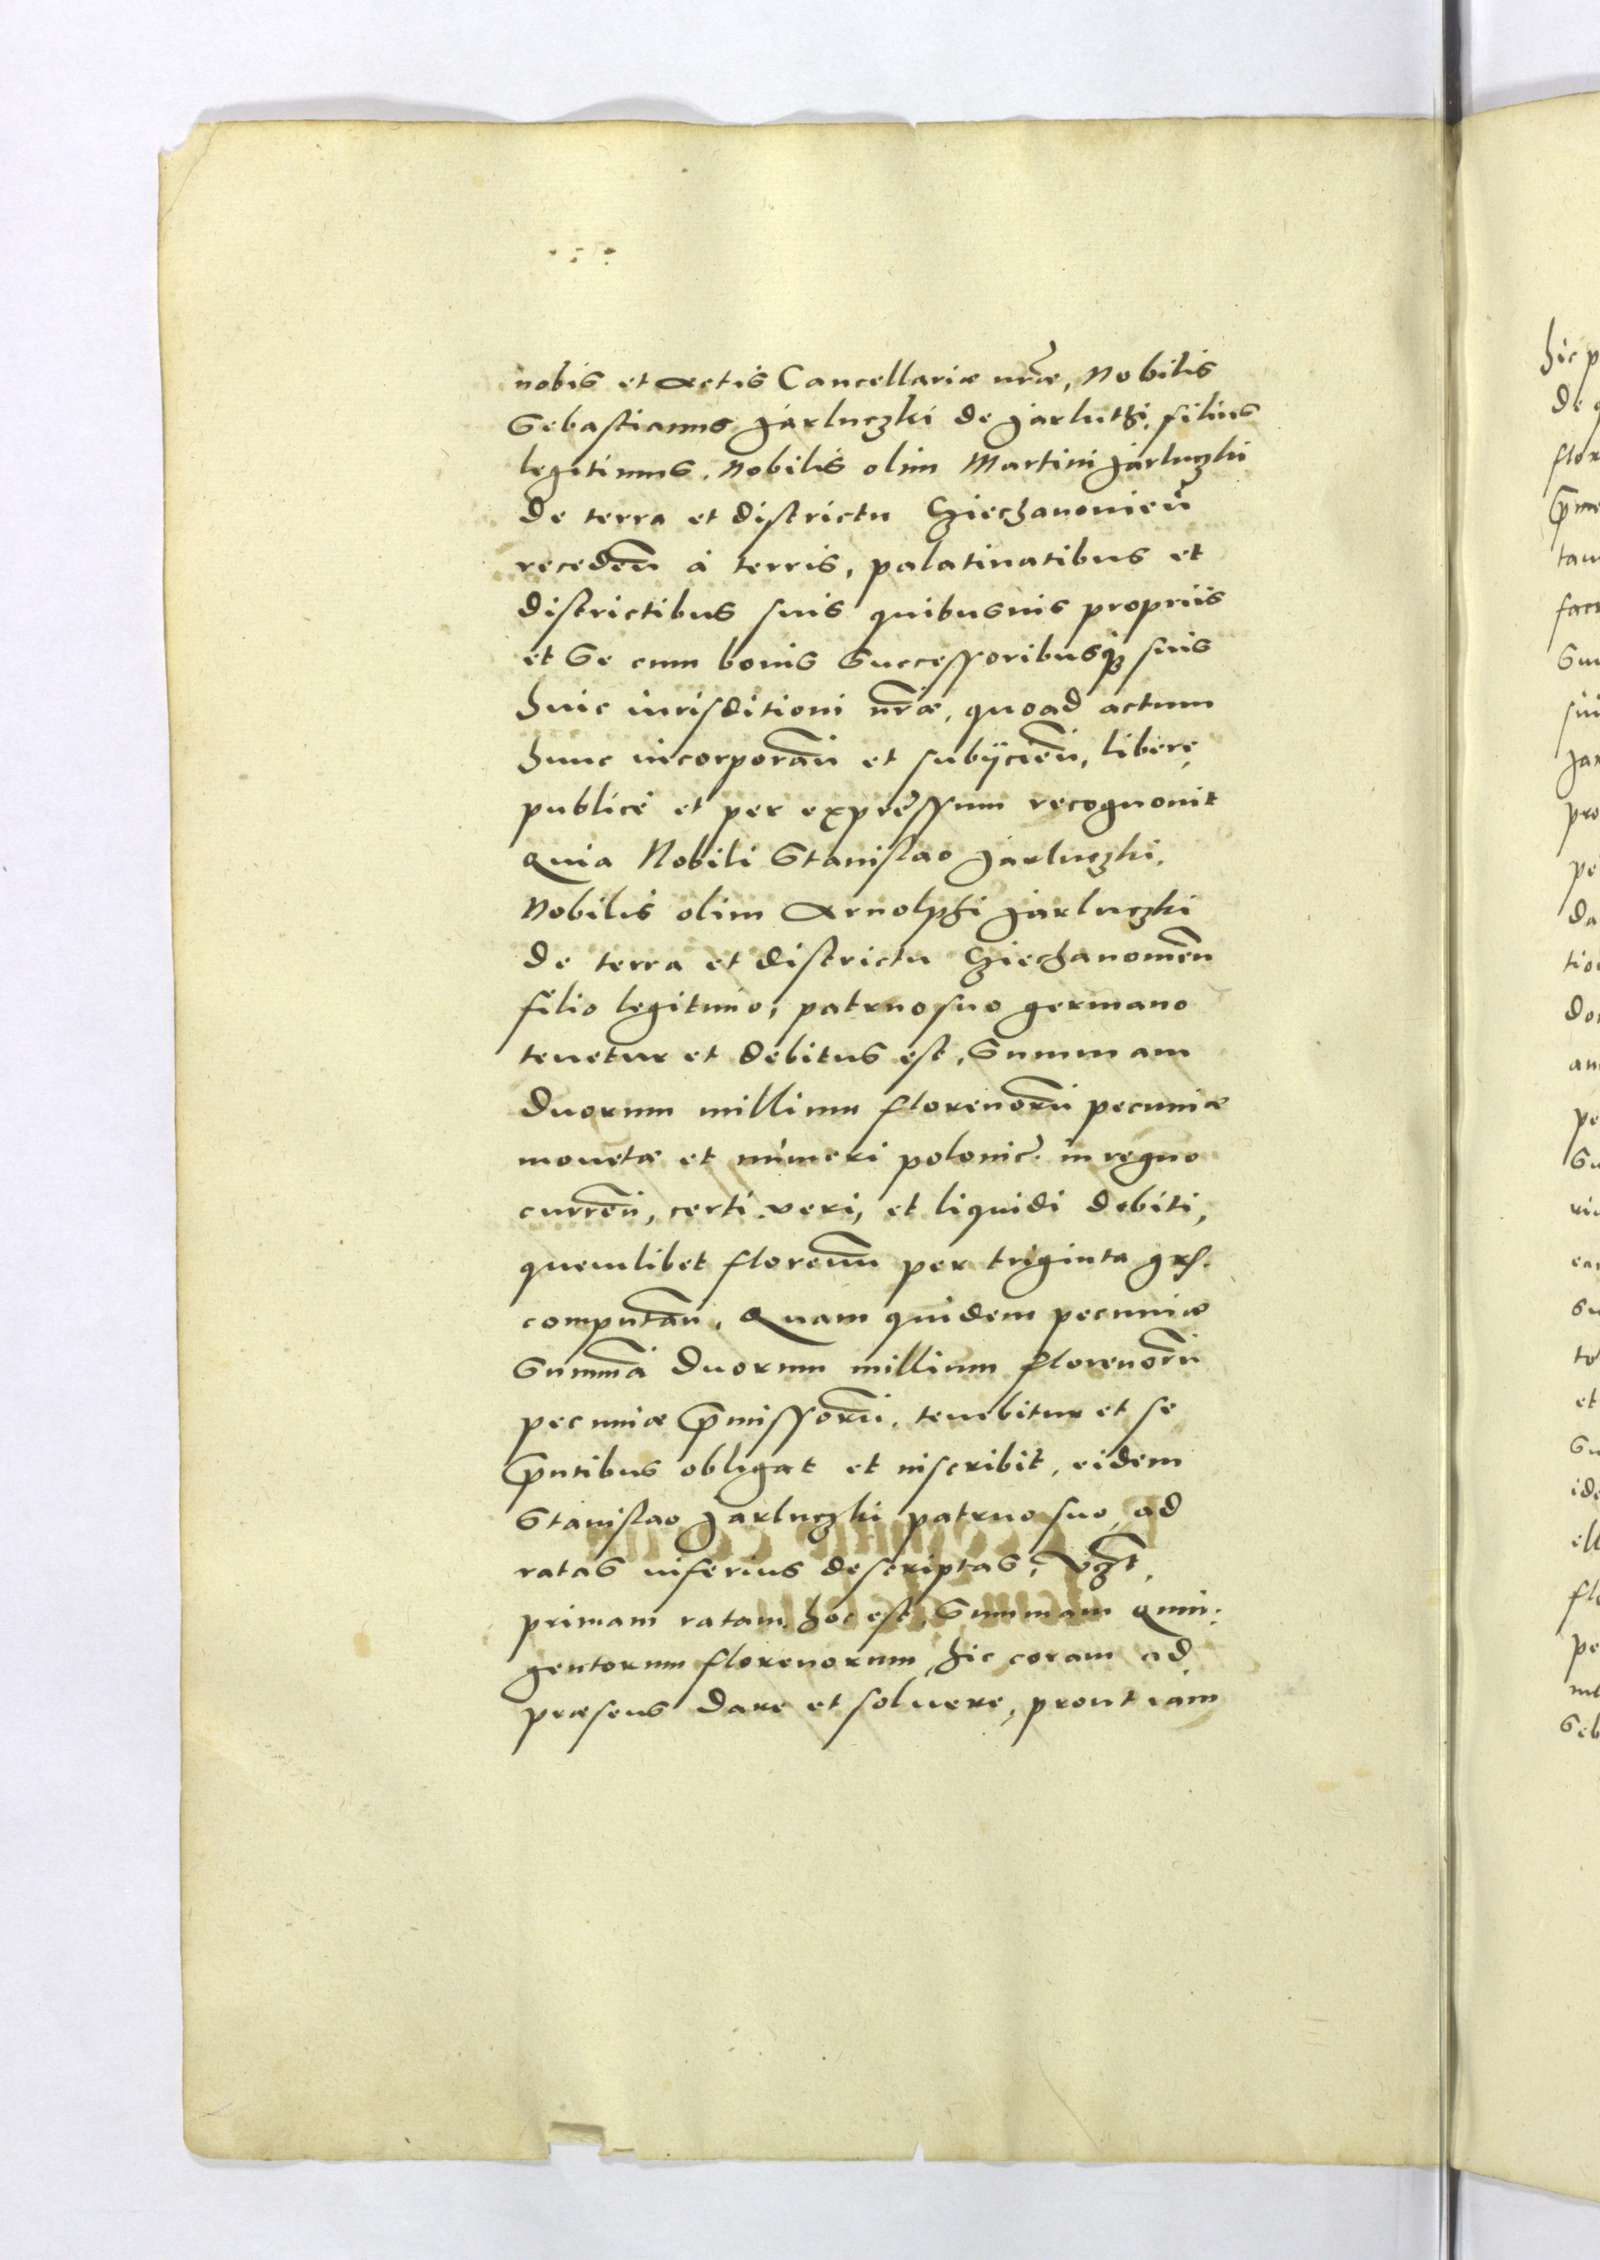 nobis et actis Cancellariæ nr̃æ, Nobilis
Sebastianus Jarluczki de Jarluthi, filius
legitimus, Nobilis olim Martini Jarluczki
de terra et districtu Cziechanouień
recedeñ à terris, palatinatibus et
districtibus suis quibusuis proprijs
et Se cum bonis Successoribusq́ꝫ suis
huic iurisditioni nr̃æ, quoad actum
hunc incorporañ et subijcieñ, liberę
publicè et per expressum recognouit
quia Nobili Stanislao Jarluczki,
Nobilis olim Arnolphi Jarluczki
de terra et districtu Cziechanouieñ
filio legitimo, patruo suo germano
tenetur et debitus est, Summam
duorum millium florenorũ pecuniæ
monetæ et númeri polonic̃. in regno
curreñ, certi veri, et liquidi debiti,
quemlibet florenũ per triginta grs.
computañ, Quam quidem pecuniæ
Summã duorum millium florenorũ
pecuniæ p̃missorũ, tenebitur et se
p̃ntibus obligat et inscribit, eidem
Stanislao Jarluczki patruo suo, ad
ratas inferius descriptas, vꝫt̃,
primam ratam hoc est, Summam quin:
gentorum florenorum, hic coram ad
præsens dare et soluere, prout iam
hic p
de q
flor
p̃me
tam
fact
Sum
sui
Jar
pro
pe
da
tio
do
am
pe
Su
ri
ea
su
to
et
Su
ide
ell
flo
pe
Seb